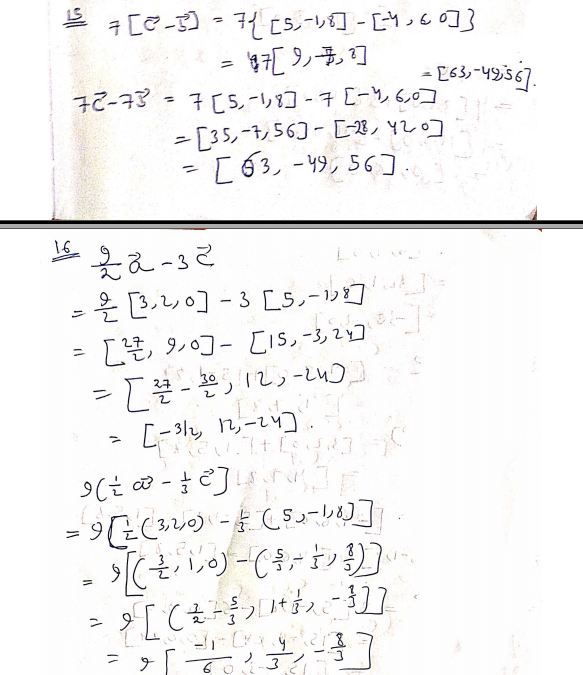 15 7[c⃗ - b⃗] = 7{[5, -1, 8] - [-4, 6 0]}
= 7[9, -7, 8]
= [63, -49, 56].
7c⃗ - 7b⃗ = 7[5, -1, 8] - 7[-4, 6, 0]
= [35, -7, 56] - [-28, 42 0]
= [63, -49, 56].
16 9/2 a⃗ - 3c⃗
= 9/2 [3, 2, 0] - 3 [5, -1, 8]
= [27/2, 9, 0] - [15, -3, 24]
= [27/2 - 30/2, 12, -24]
= [-3/2, 12, -24].
9(1/2 a⃗ - 1/3 c⃗]
= 9[1/2 (3, 2, 0) - 1/3 (5, -1, 8]]
= 9[(3/2, 1, 0) - (5/3, -1/3, 8/3)]
= 9[(3/2 - 5/3, 1 + 1/3, -8/3]]
= 9[-1/6, 4/3, -8/3]